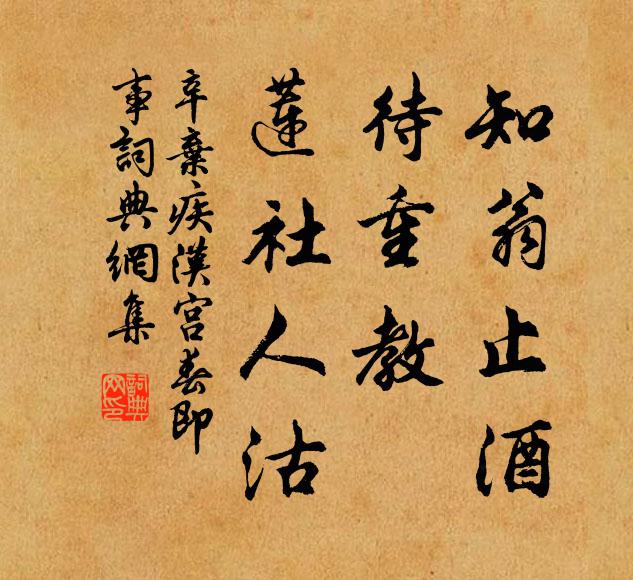 知翁止酒
待重教
蓮社人沽
辛棄疾漢宮春即
事詞典網集
詞典網印